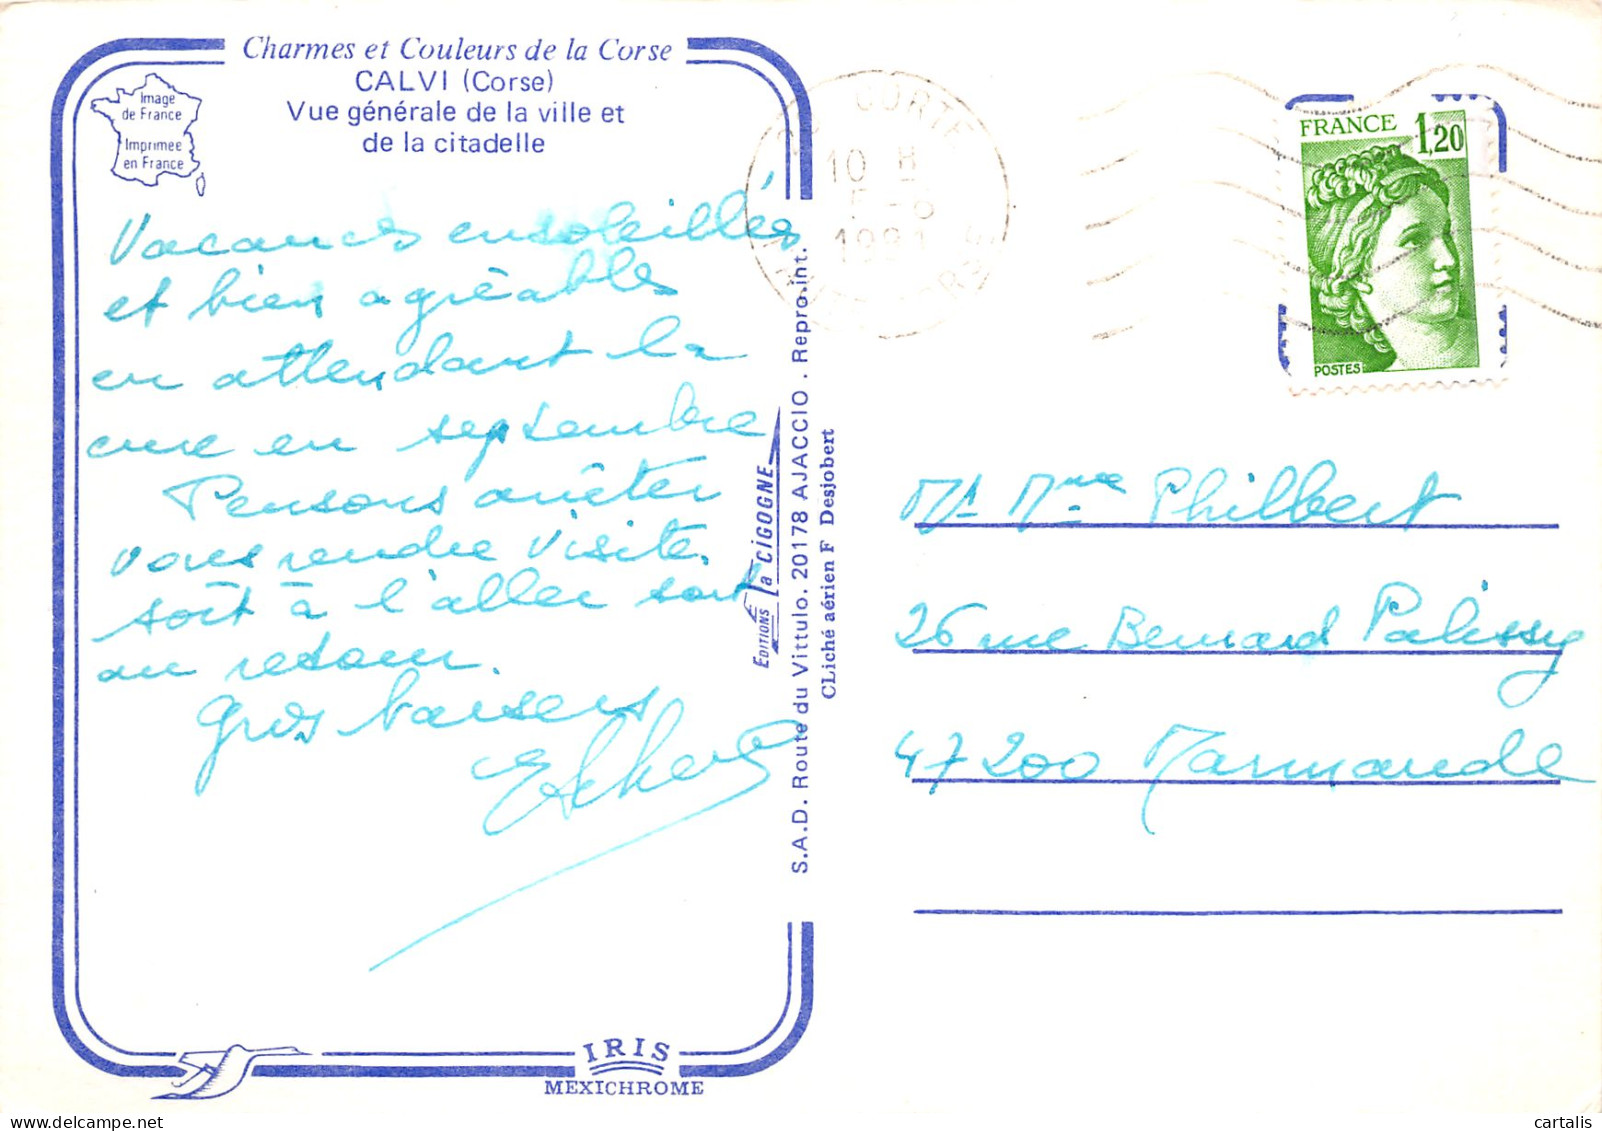 Charmes et Couleurs de la Corse
CALVI (Corse)
Vue générale de la ville et
de la citadelle
Image
de France
Imprimée
en France
Vacances ensoleillées
et bien agréables
en attendant la
cure en septembre
Pensons arrêter
vous rendre visite
soit à l'aller soit
au retour.
Gros baisers
EDITIONS la CIGOGNE
S.A.D. Route du Vittulo. 20178 AJACCIO . Repro.int.
CLiché aérien F Desjobert
IRIS
MEXICHROME
CORTE
10 H
5-8
1981
FRANCE 1,20
POSTES
Mr Mme Philbert
26 rue Bernard Palissy
47200 Marmande
delcampe.net
cartalis